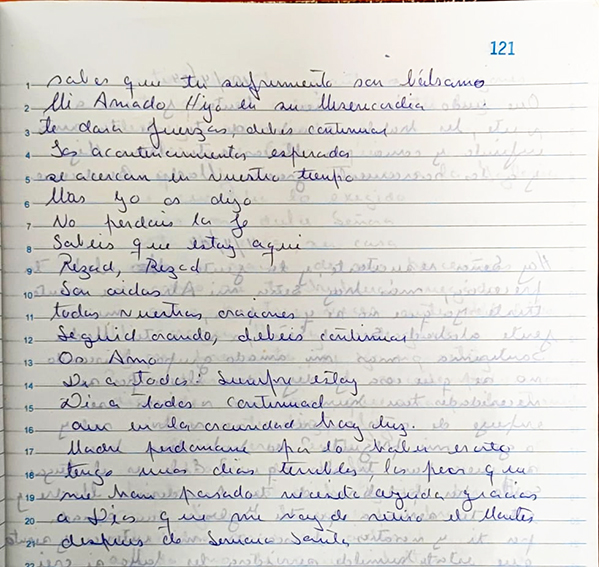 121
1 sabes que tu sufrimiento son bálsamo
2 Mi Amado Hijo en su Misericordia
3 te dara fuerzas debeis continuar
4 Los acontecimientos esperados
5 se acercan en vuestro tiempo
6 Mas yo os digo
7 No perdais la fe
8 Sabeis que estoy aqui
9 Rezad, Rezad
10 Son oidas
11 todas vuestras oraciones
12 Seguid orando, debeis continuar
13 Os Amo
14 Di a todos: Siempre estoy
15 Di a todos continuad
16 aun en la oscuridad hay luz.
17 Madre perdoname por no haber escrito
18 tengo unos dias terribles, los peor que
19 me han pasado necesito ayuda gracias
20 a Dios que me voy de retiro el Martes
21 despues de Semana Santa
22